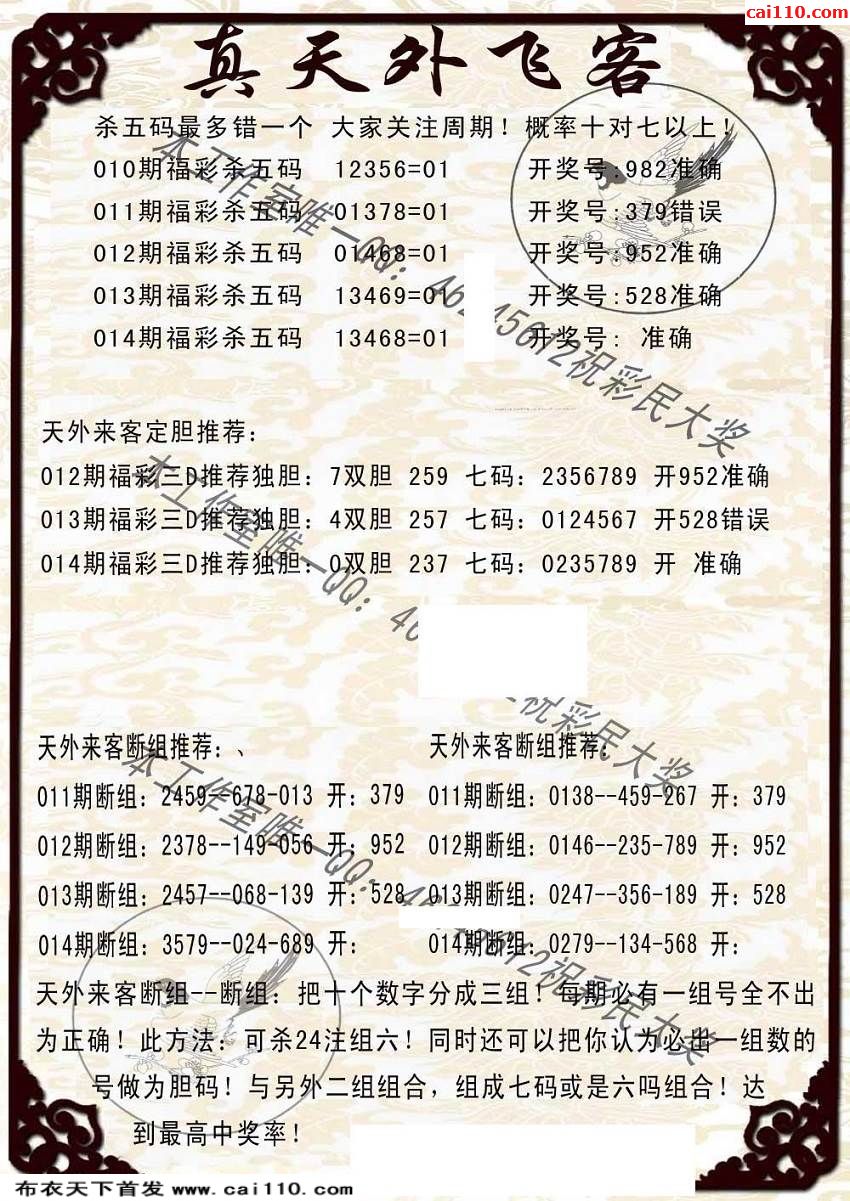 cai110.com
真天外飞客
杀五码最多错一个 大家关注周期！概率十对七以上！
010期福彩杀五码 12356=01 开奖号:982准确
011期福彩杀五码 01378=01 开奖号:379错误
012期福彩杀五码 01468=01 开奖号:952准确
013期福彩杀五码 13469=01 开奖号:528准确
014期福彩杀五码 13468=01 开奖号: 准确
天外来客定胆推荐：
012期福彩三D推荐独胆：7双胆 259 七码：2356789 开952准确
013期福彩三D推荐独胆：4双胆 257 七码：0124567 开528错误
014期福彩三D推荐独胆：0双胆 237 七码：0235789 开 准确
天外来客断组推荐：、
011期断组：2459--678-013 开：379
012期断组：2378--149-056 开：952
013期断组：2457--068-139 开：528
014期断组：3579--024-689 开：
天外来客断组推荐：
011期断组：0138--459-267 开：379
012期断组：0146--235-789 开：952
013期断组：0247--356-189 开：528
014期断组：0279--134-568 开：
天外来客断组--断组：把十个数字分成三组！每期必有一组号全不出
为正确！此方法：可杀24注组六！同时还可以把你认为必出一组数的
号做为胆码！与另外二组组合，组成七码或是六吗组合！达
到最高中奖率！
本工作室唯一QQ：46 45612祝彩民大奖
本工作室唯一QQ：46 祝彩民大奖
本工作室唯一QQ：46 5612祝彩民大奖
布衣天下首发 www.cai110.com